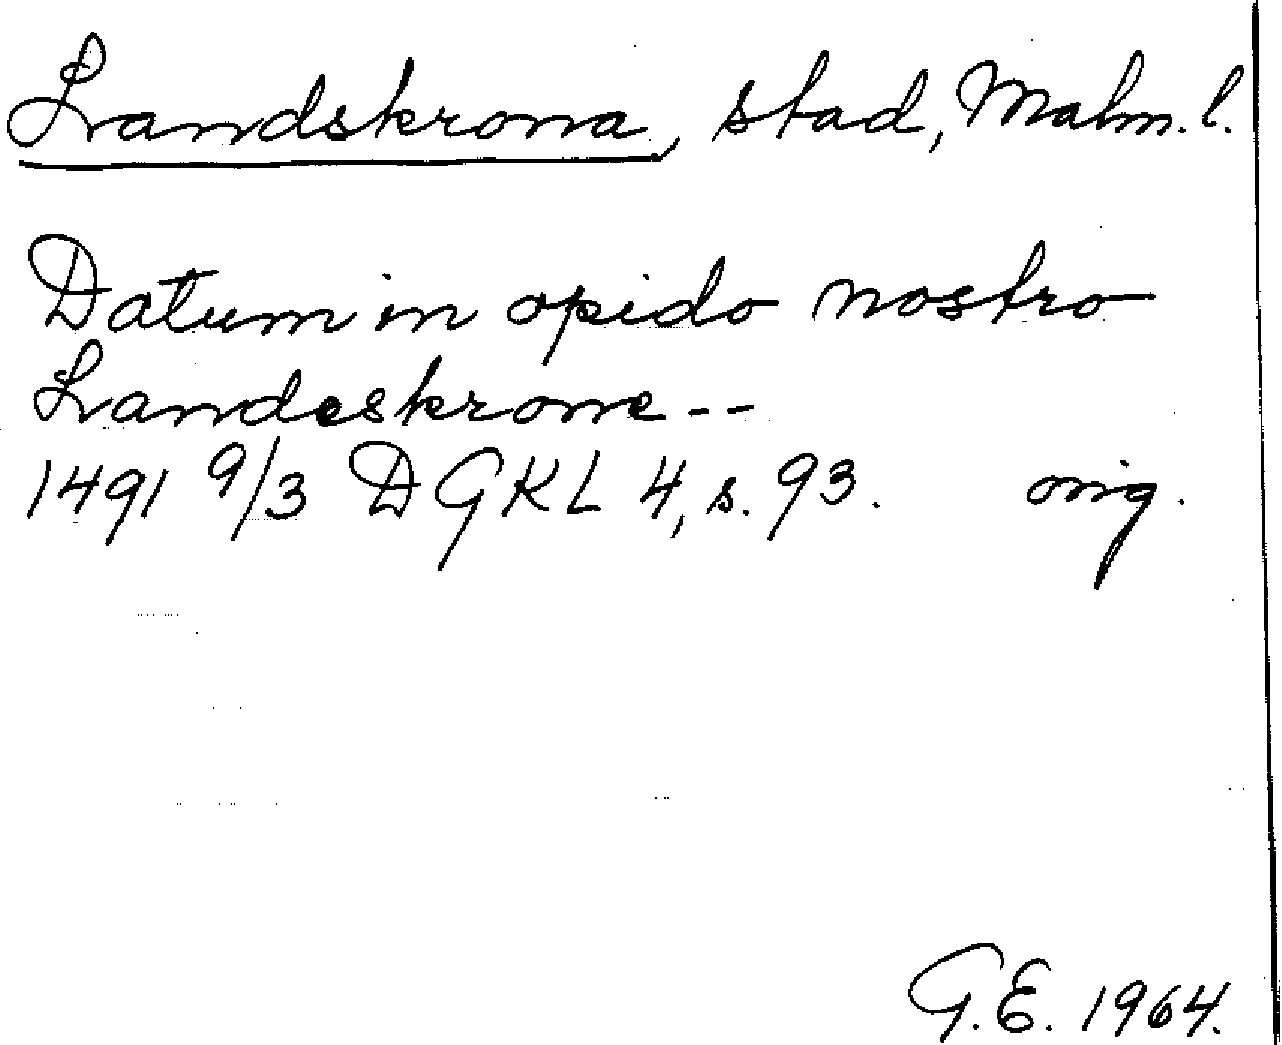 Landskrona, stad, Malm. l.
Datum in opido nostro
Landeskrone --
1491 9/3 DGKL 4, s. 93. orig.
G.E. 1964.